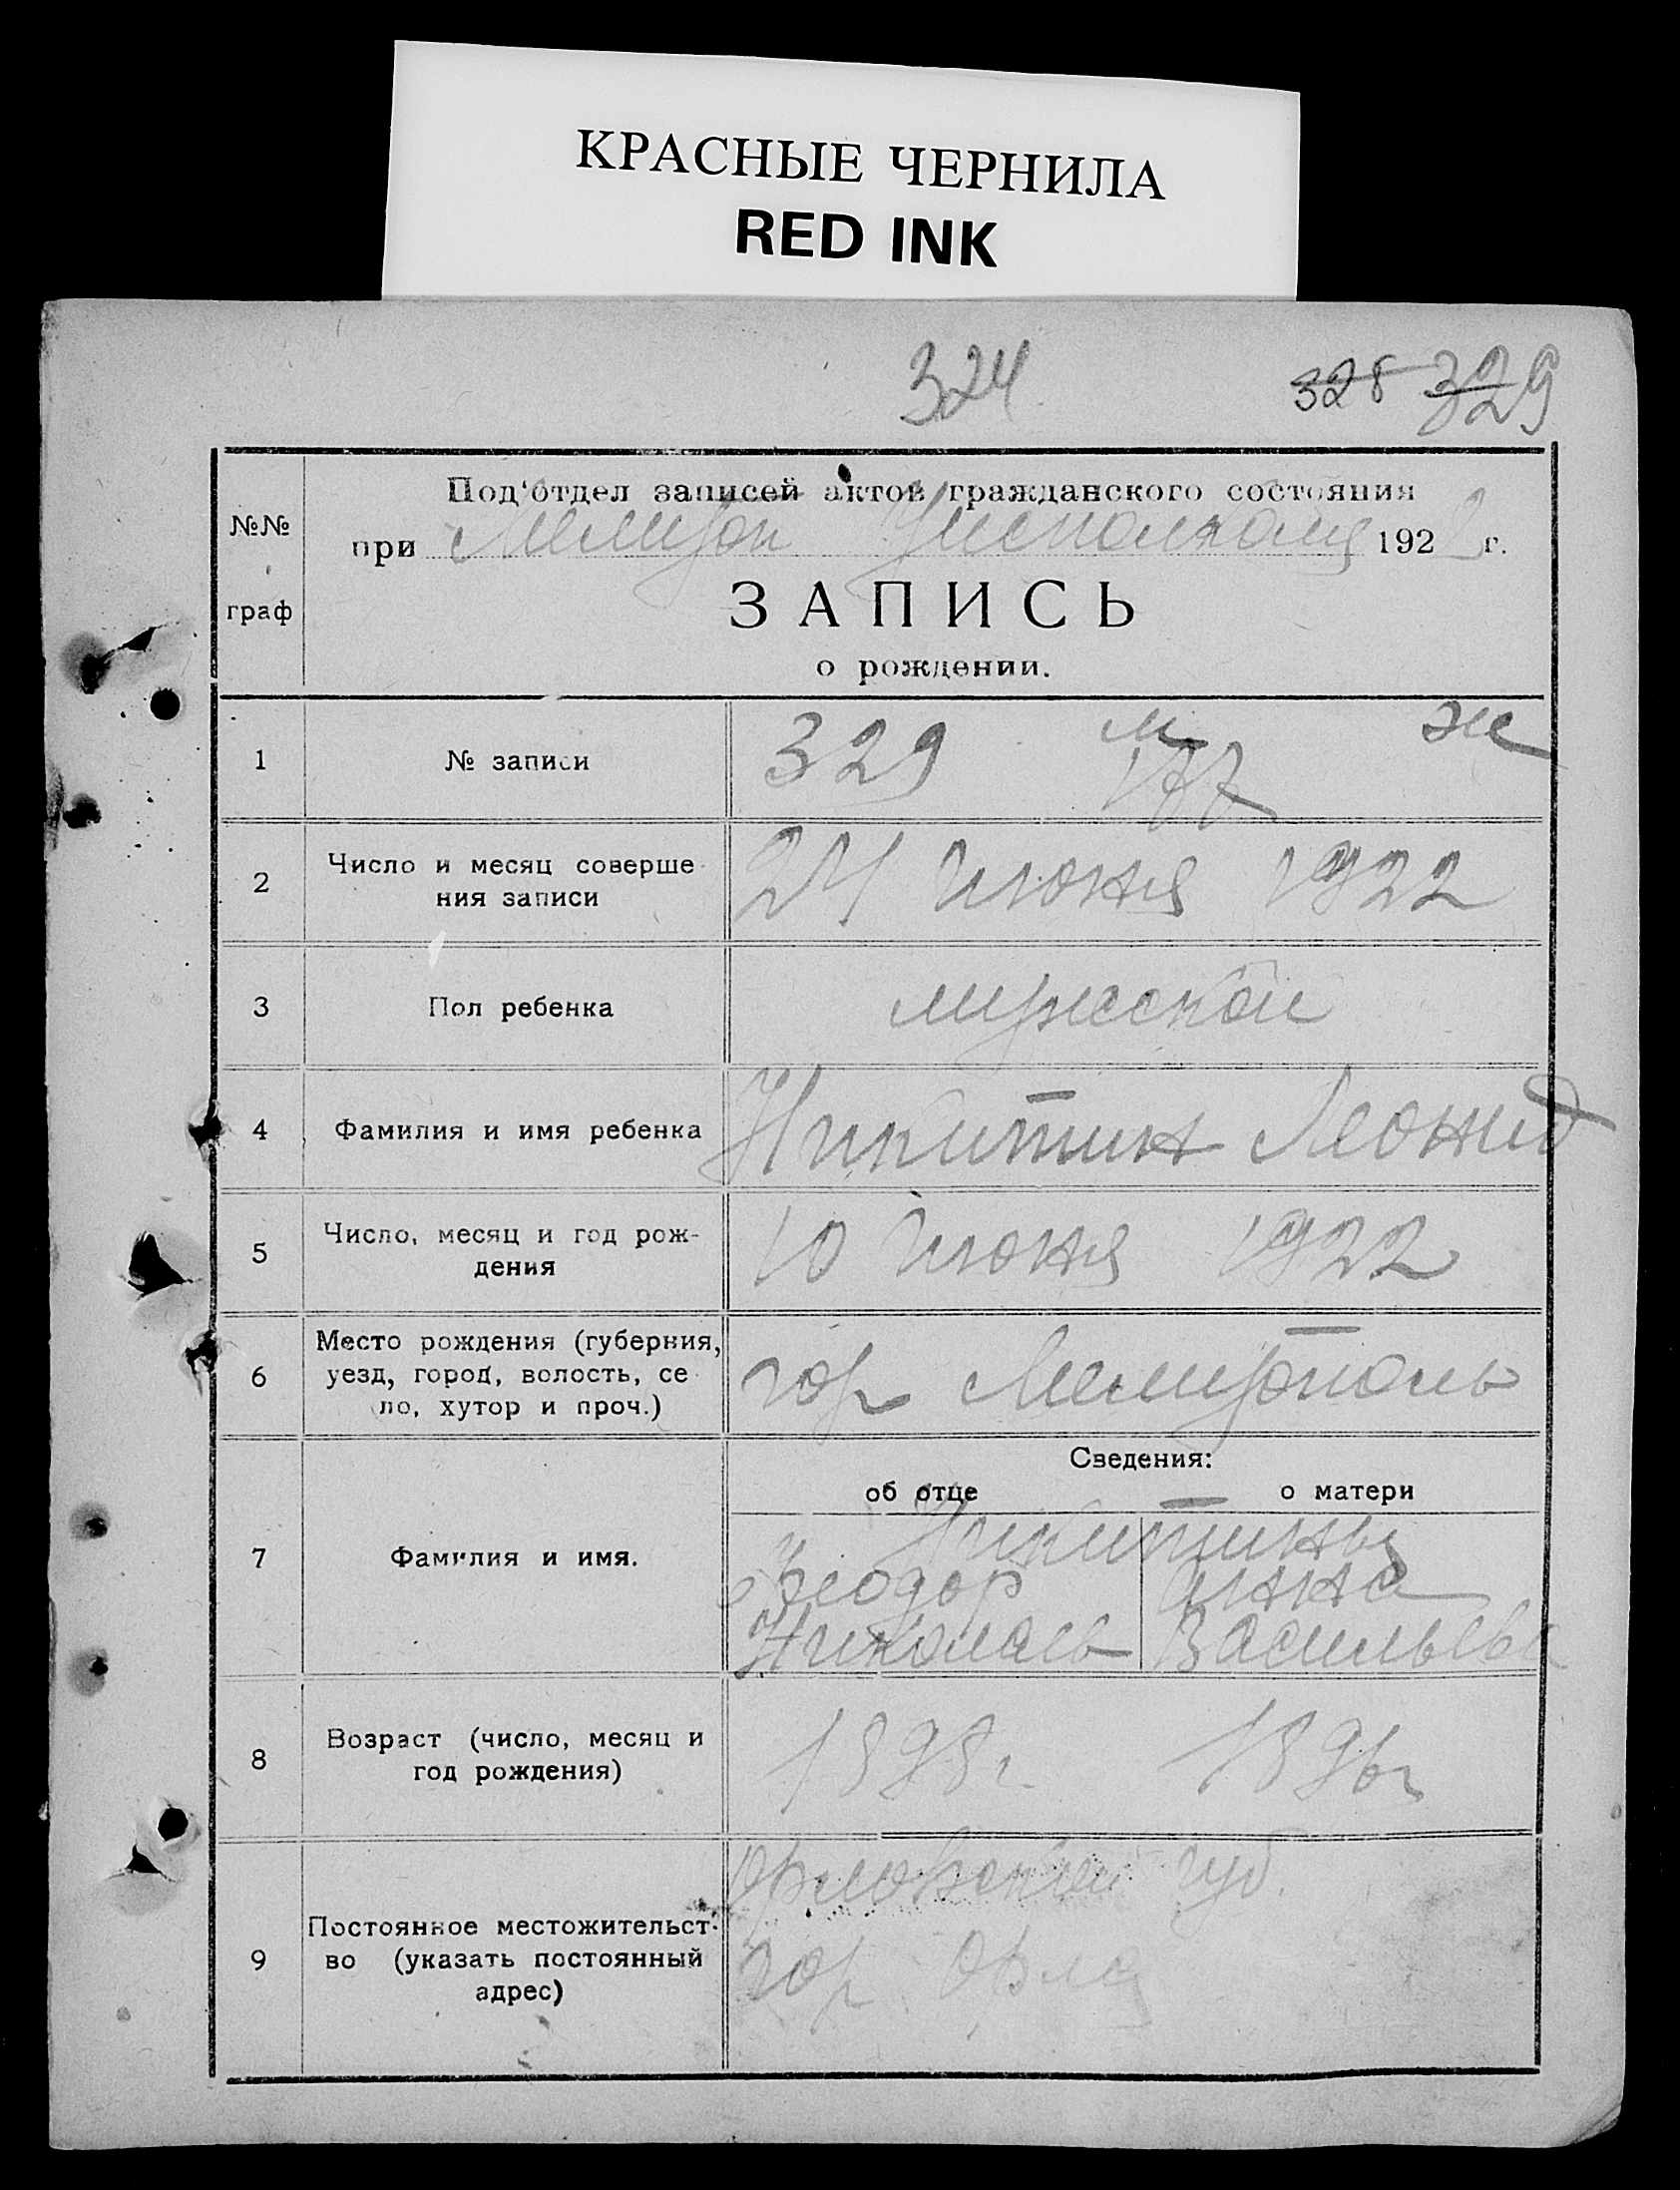 КРАСНЫЕ ЧЕРНИЛА
RED INK
324
328 329
№№
граф
Под'отдел записей актов гражданского состояния
при Мелитоп Уисполкоме 1922 г.
ЗАПИСЬ
о рождении.
1 № записи 329 м ж
177
2 Число и месяц соверше
ния записи
24 июня 1922
3 Пол ребенка мужской
4 Фамилия и имя ребенка Никитин Леонид
5 Число, месяц и год рож-
дения
10 июня 1922
6 Место рождения (губерния,
уезд, город, волость, се
ло, хутор и проч.)
гор Мелитополь
Сведения:
об отце о матери
7 Фамилия и имя.
Никитины
Феодор Анна
Николаев Васильева
8 Возраст (число, месяц и
год рождения)
1898 г 1896 г
9 Постоянное местожительст-
во (указать постоянный
адрес)
Орловской губ.
гор Орла